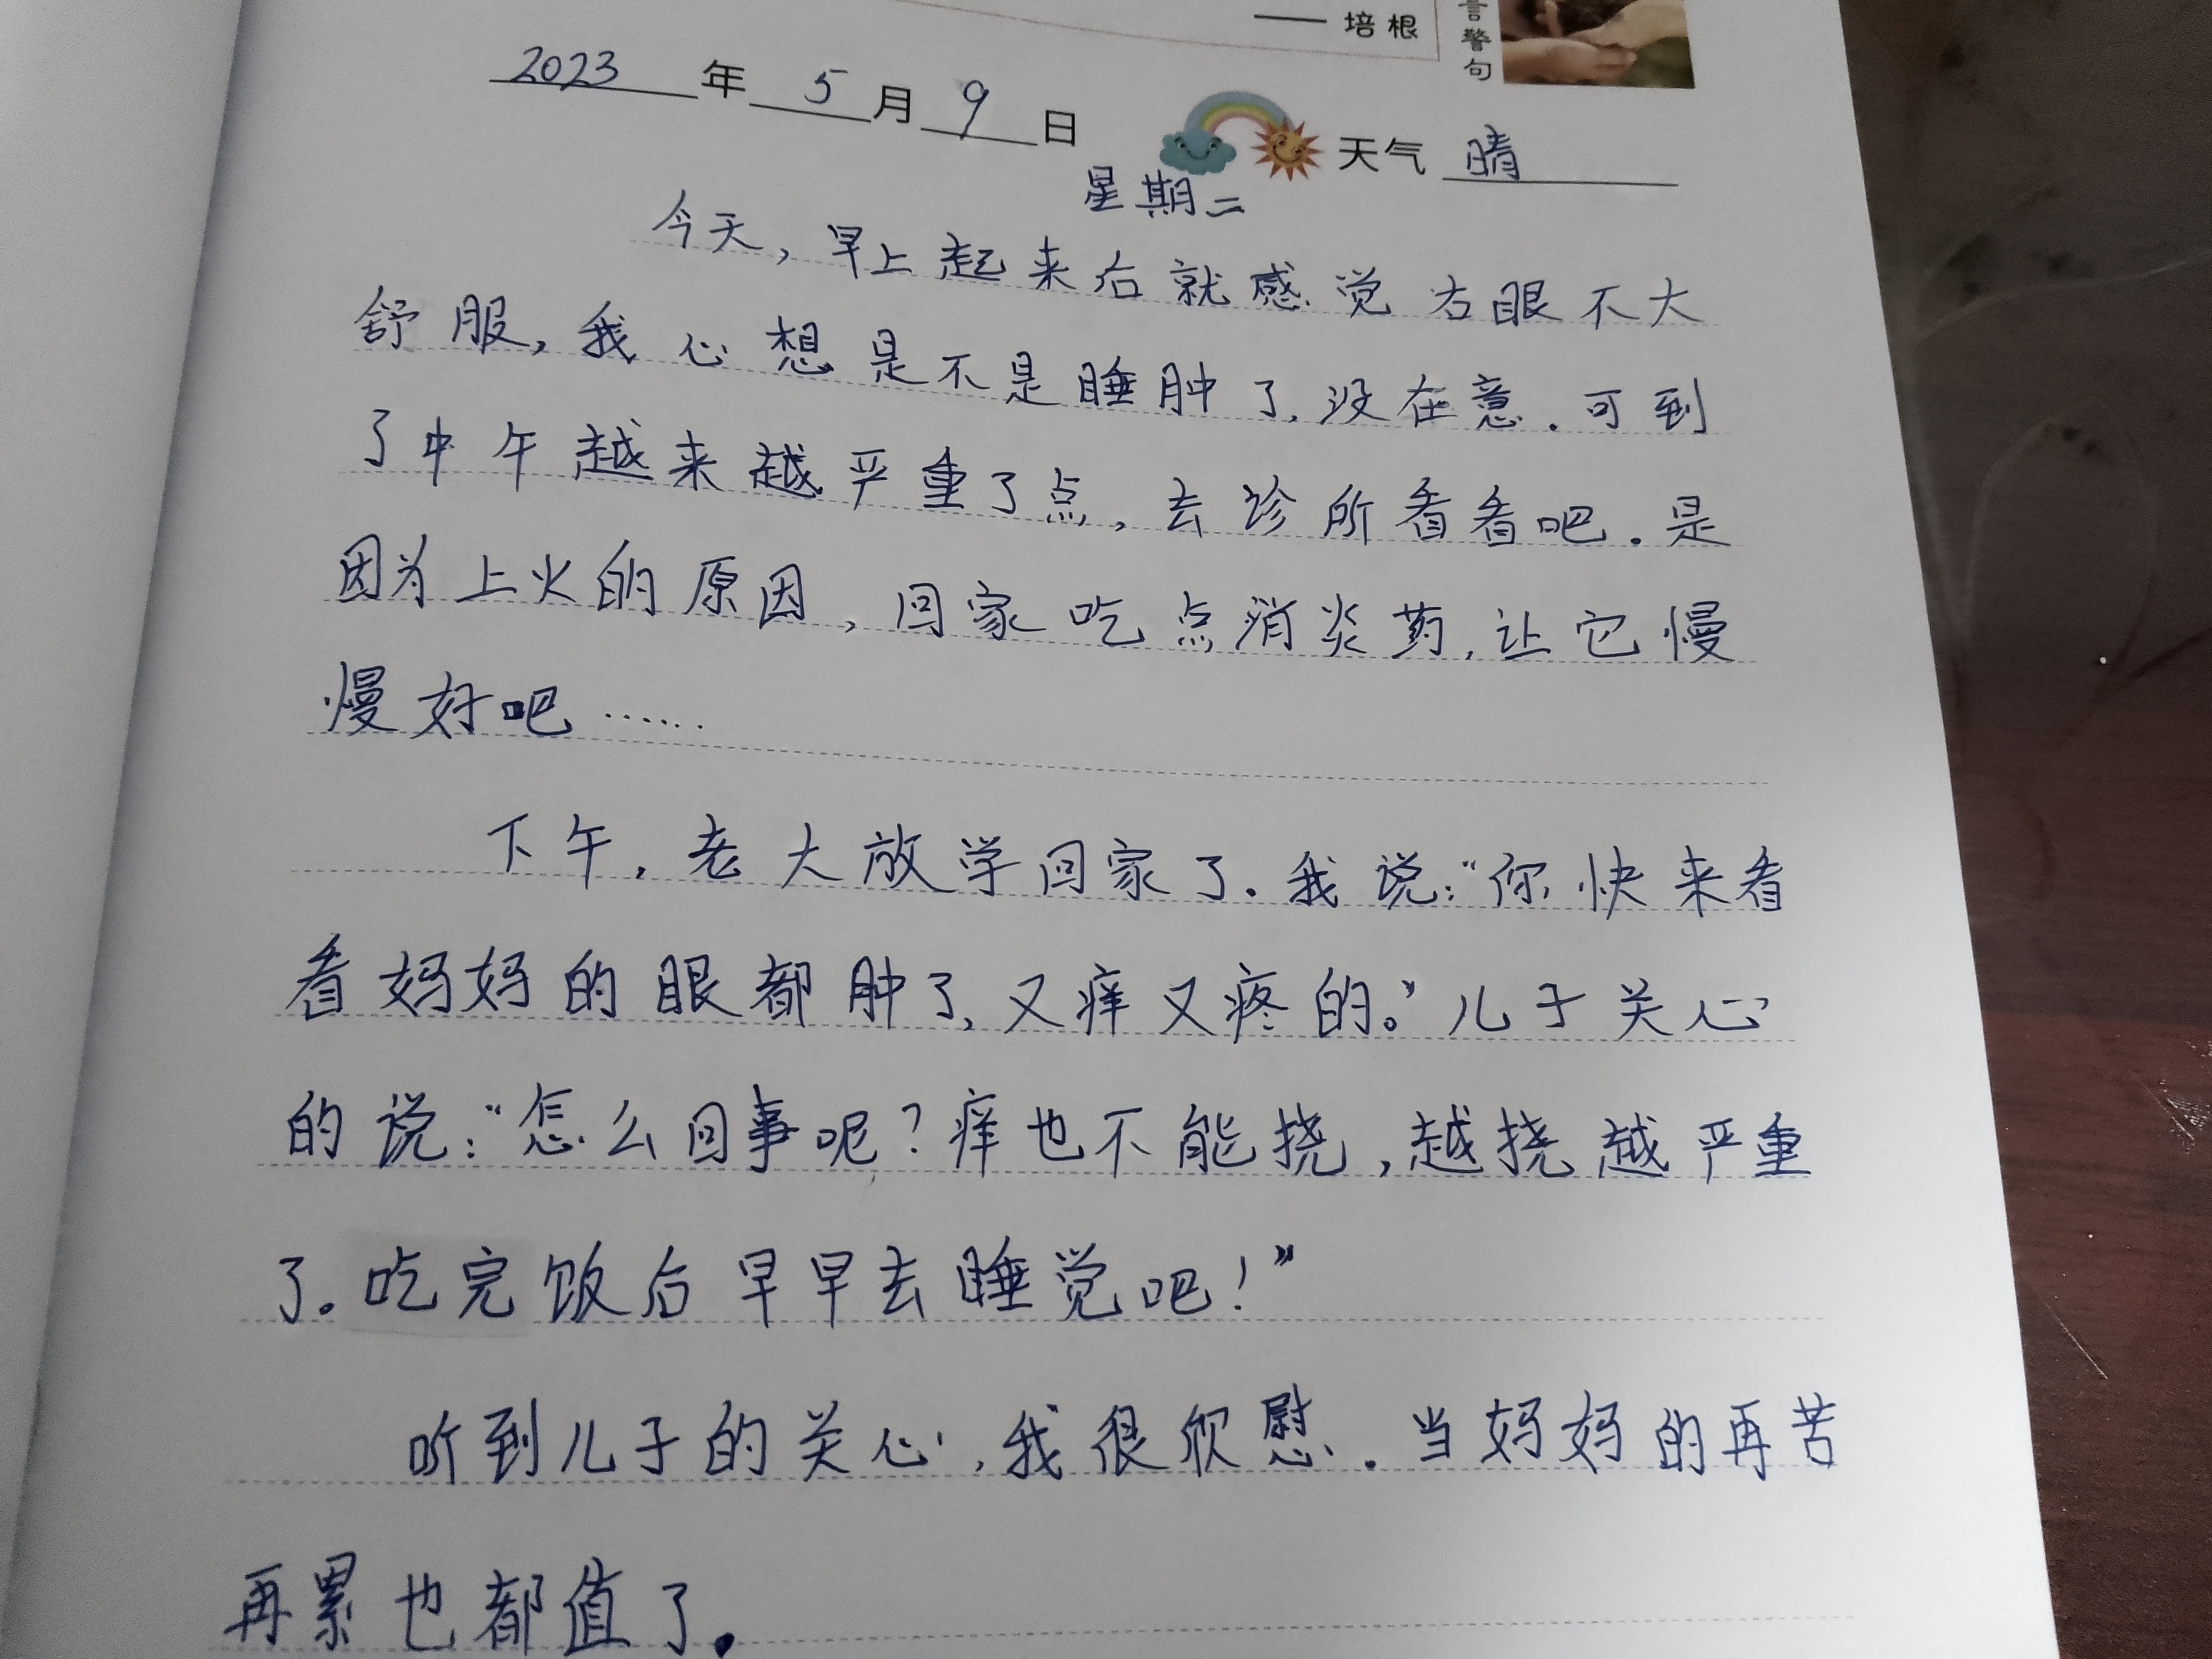 —— 培根
言警句
2023年5月9日 天气 晴
星期二
今天，早上起来后就感觉右眼不大
舒服，我心想是不是睡肿了，没在意．可到
了中午越来越严重了点，去诊所看看吧．是
因为上火的原因，回家吃点消炎药，让它慢
慢好吧……
下午，老大放学回家了．我说：“你快来看
看妈妈的眼都肿了，又痒又疼的。”儿子关心
的说：“怎么回事呢？痒也不能挠，越挠越严重
了。吃完饭后早早去睡觉吧！”
听到儿子的关心，我很欣慰．当妈妈的再苦
再累也都值了。